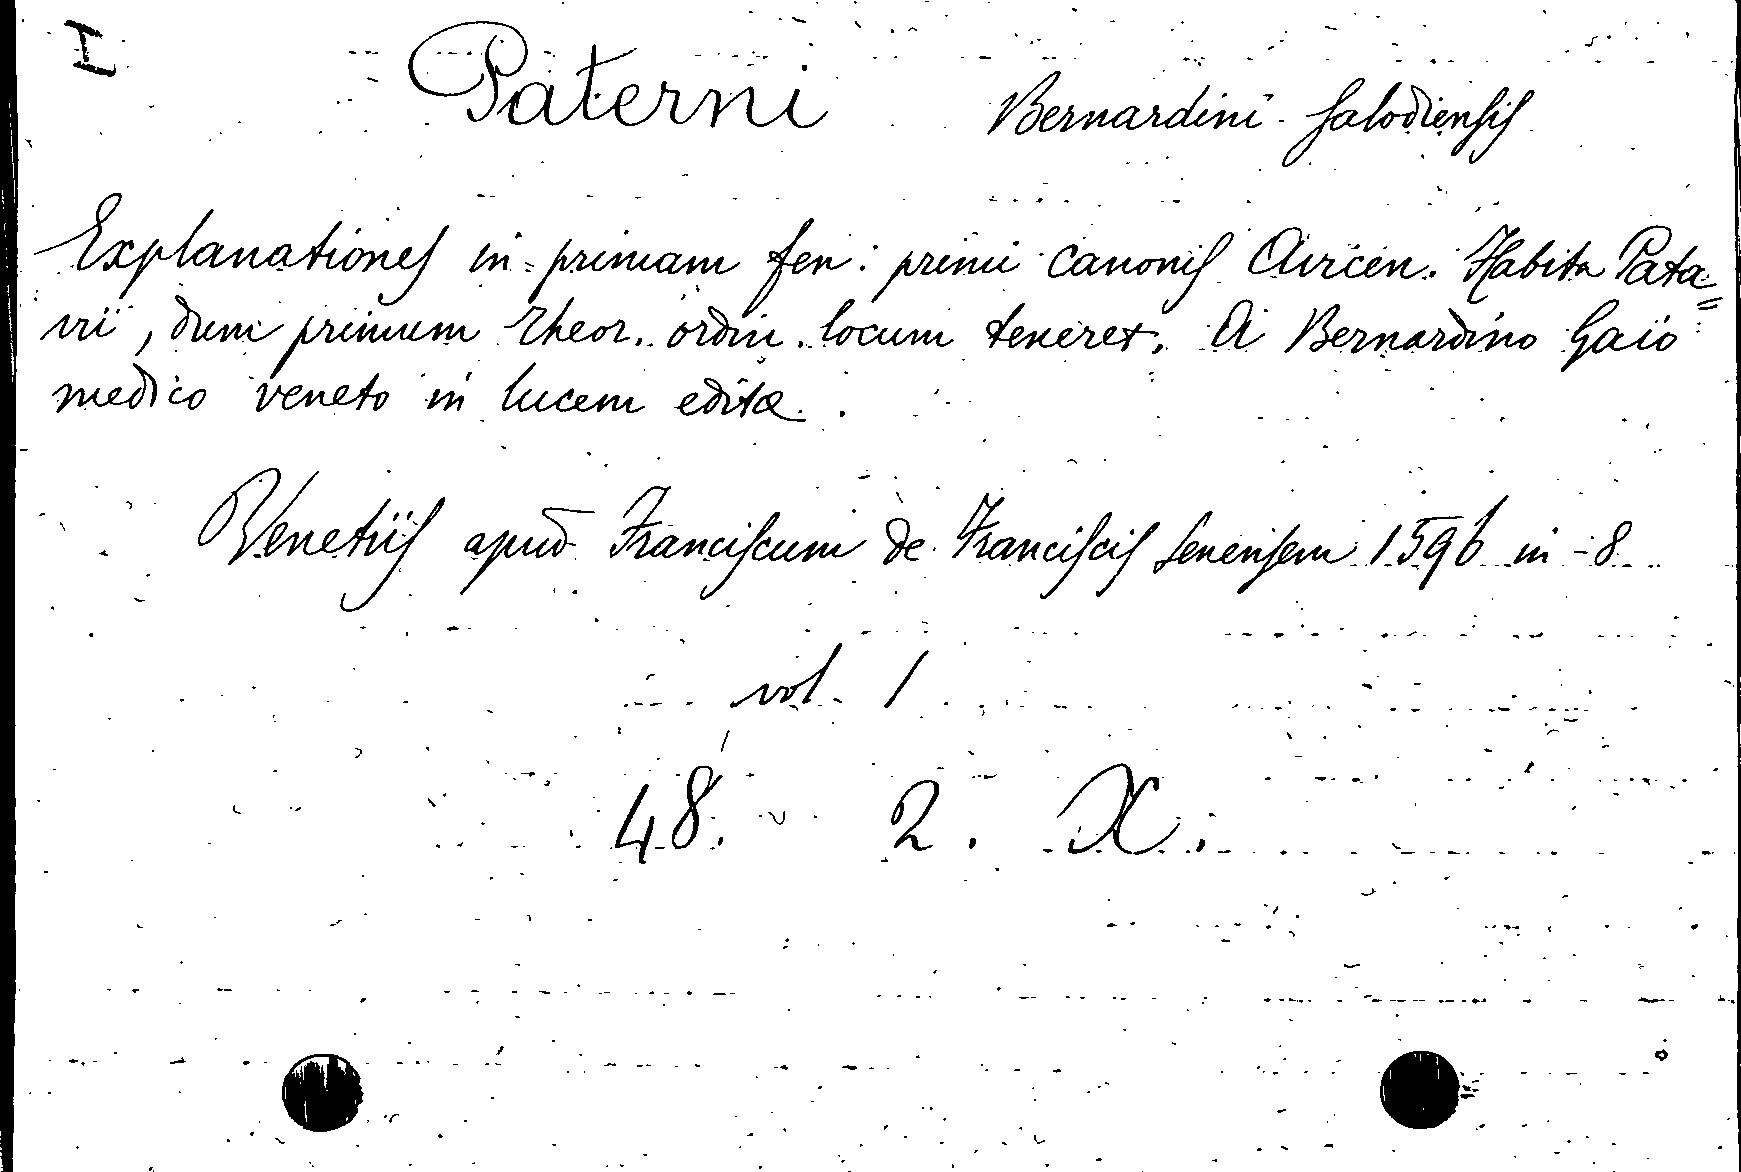 I
Paterni Bernardini Salodiensis
Explanationes in primam fen: primi Canonis Avicen. Habita Pata=
vii, dum primum theor. ordin. locum teneret. A Bernardino Gaio
medico veneto in lucem editæ.
Venetiis apud Franciscum de Franciscis Senensem 1596 in-8
vol. 1
48. 2. X.